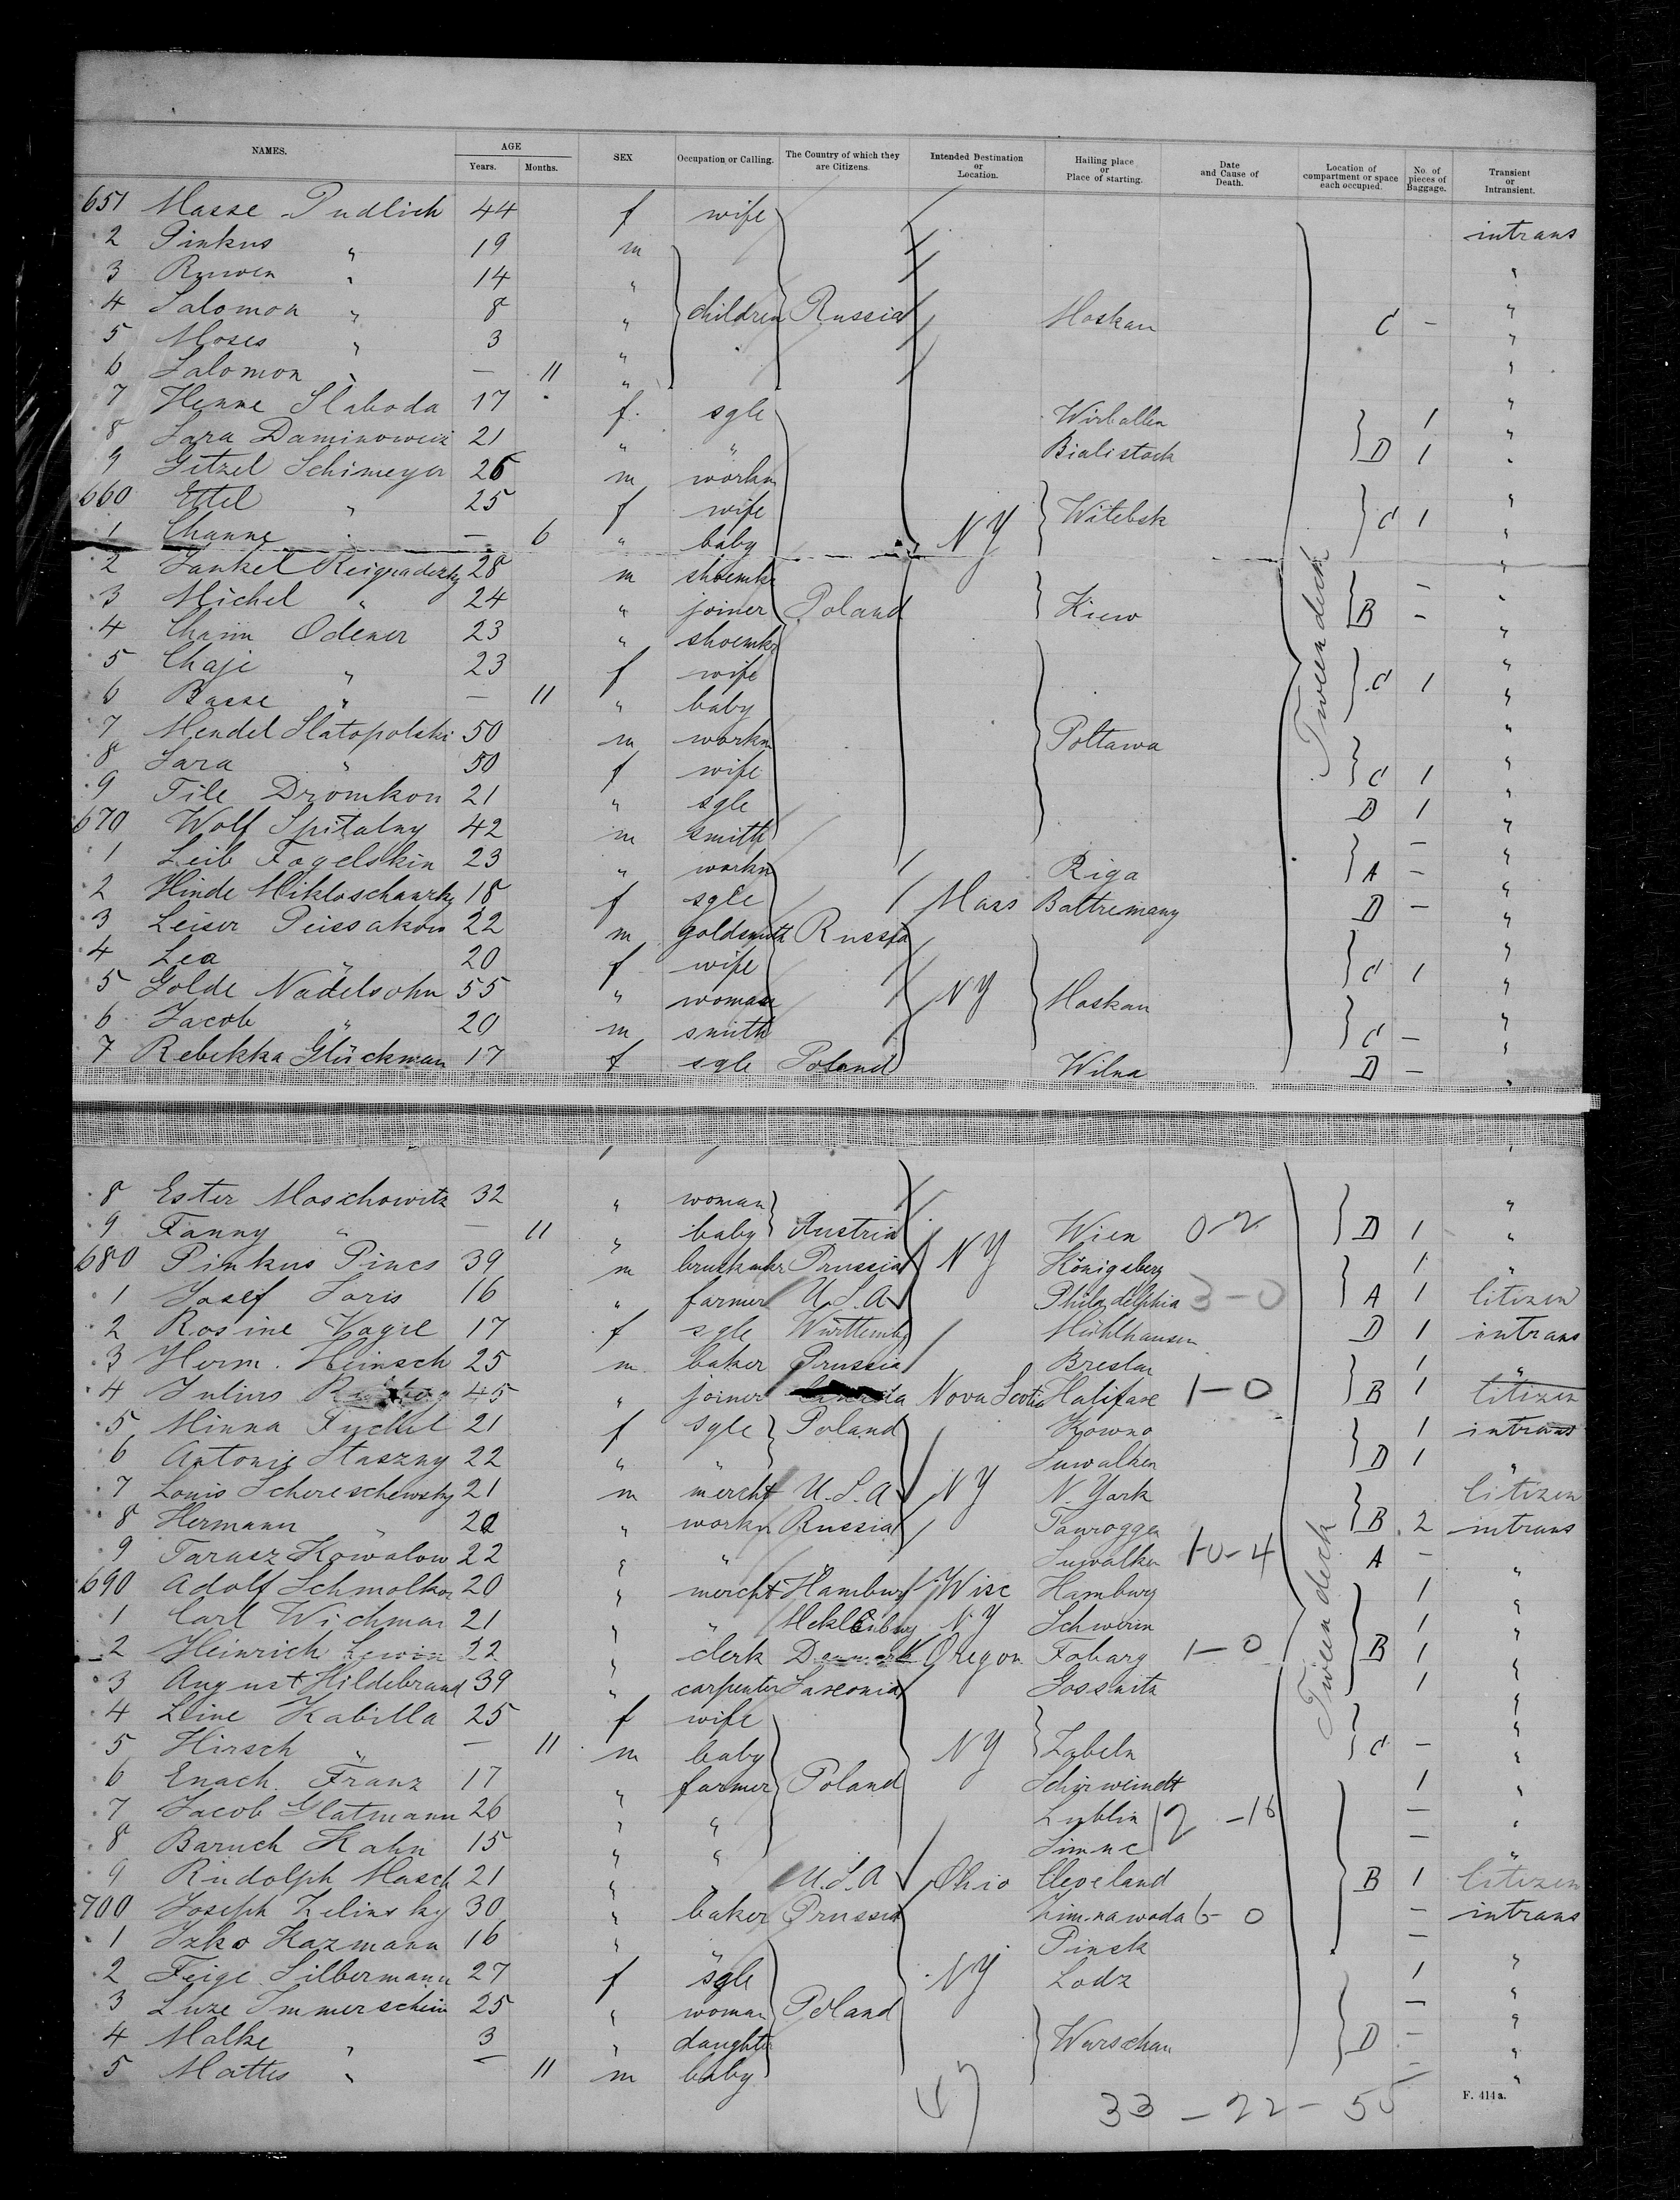 NAMES. AGE Years. Months. SEX Occupation or Calling. The Country of which they are Citizens. Intended Destination or Location. Hailing place or Place of starting. Date and Cause of Death. Location of compartment or space each occupied. No. of pieces of Baggage. Transient or Intransient.
651 Masse Pudlich 44 f wife intrans
2 Pinkus " 19 m "
3 Ruwen " 14 " "
4 Salomon " 8 " children Russia Moskau C – "
5 Moses " 3 " "
6 Salomon " – 11 " "
7 Henne Slaboda 17 f sgle Wirballen 1 "
8 Sara Daminoweik 21 " " Bialistock D 1 "
9 Getzel Schimeyer 26 m workm "
660 Ettel " 25 f wife Witebsk C 1 "
1 Channe " – 6 " baby NY "
2 Jankel 28 m shoemkr – "
3 Michel " 24 " joiner Poland Kiew B – "
4 Chaim Odener 23 " shoemkr "
5 Chaje " 23 f wife C 1 "
6 Basse " – 11 " baby "
7 Mendel Slatopolski 50 m workm Poltawa "
8 Sara " 50 f wife C 1 "
9 Tile Dromkon 21 " sgle D 1 "
670 Wolf Spitalny 42 m smith – "
1 Leib Fogelskin 23 " workm Riga A – "
2 Hinde 18 f sgle Mass Baltremany D – "
3 Leiser Peissakow 22 m goldsmith Russia "
4 Lea " 20 f wife C 1 "
5 Golde Nadelsohn 55 " woman NY Moskau "
6 Jacob " 20 m smith C – "
7 Rebekka Glückman 17 f sgle Poland Wilna D – "
Tween deck
8 Ester Moschowitz 32 " woman "
9 Fanny " – 11 " baby Austria Wien 0-2 D 1 "
680 Pinkus Pines 39 m Prussia NY Königsberg 1 "
1 Josef Saris 16 " farmer U.S.A Philadelphia 3-0 A 1 Citizen
2 Rosine Vogel 17 f sgle Württembg Mühlhausen D 1 intrans
3 Herm. Heinsch 25 m baker Prussia Breslau 1 "
4 Julius 45 " joiner Nova Scotia Halifax 1-0 B 1 Citizen
5 Minna Fuchel 21 f sgle Poland Kowno 1 intrans
6 Antonie Staszny 22 " " Suwalken D 1 "
7 Louis Schereschewsky 21 m mercht U.S.A NY N. York Citizen
8 Hermann " 22 " workm Russia Tauroggen B 2 intrans
9 Tarasz Kowalow 22 " " Suwalken 10-4 A – "
690 Adolf Schmolkon 20 " mercht Hamburg Wisc Hamburg 1 "
1 Carl Wichman 21 " " Mecklenburg NY Schwerin 1 "
2 Heinrich Lewin 22 " clerk Denmark Oregon Faborg 1-0 B 1 "
3 August Hildebrand 39 " carpenter Saxonia Gossnitz 1 "
4 Leine Kabilla 25 f wife "
5 Hirsch " – 11 m baby NY Zabeln C – "
6 Enach Franz 17 " farmer Poland Schirweindt 1 "
7 Jacob Glatmann 26 " " Lublin 12-16 – "
8 Baruch Kahn 15 " " Simne – "
9 Rudolph Masch 21 " " U.S.A Ohio Cleveland B 1 Citizen
700 Joseph Zelinsky 30 " baker Prussia Zimnawoda 6-0 – intrans
1 Izko Kazmann 16 " " Pinsk –
2 Feige Silbermann 27 f sgle NY Lodz 1 "
3 Luze Immerschein 25 " woman Poland – "
4 Malke " 3 " daughter Warschau D – "
5 Mattes " – 11 m baby – "
Tween deck
47 33-22-55 F. 414 a.